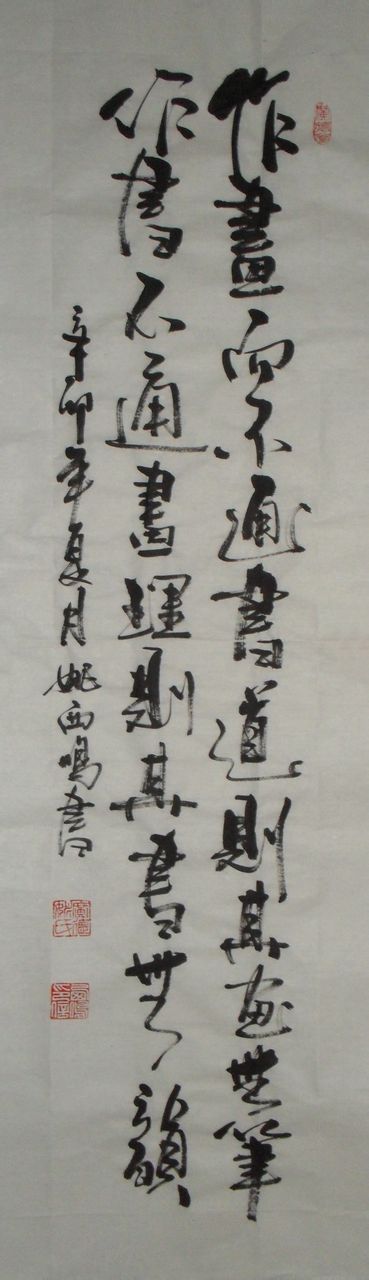 作畫而不通書道則其画無筆
作書不通畫理則其書無韻
辛卯年夏月姚西鳴書